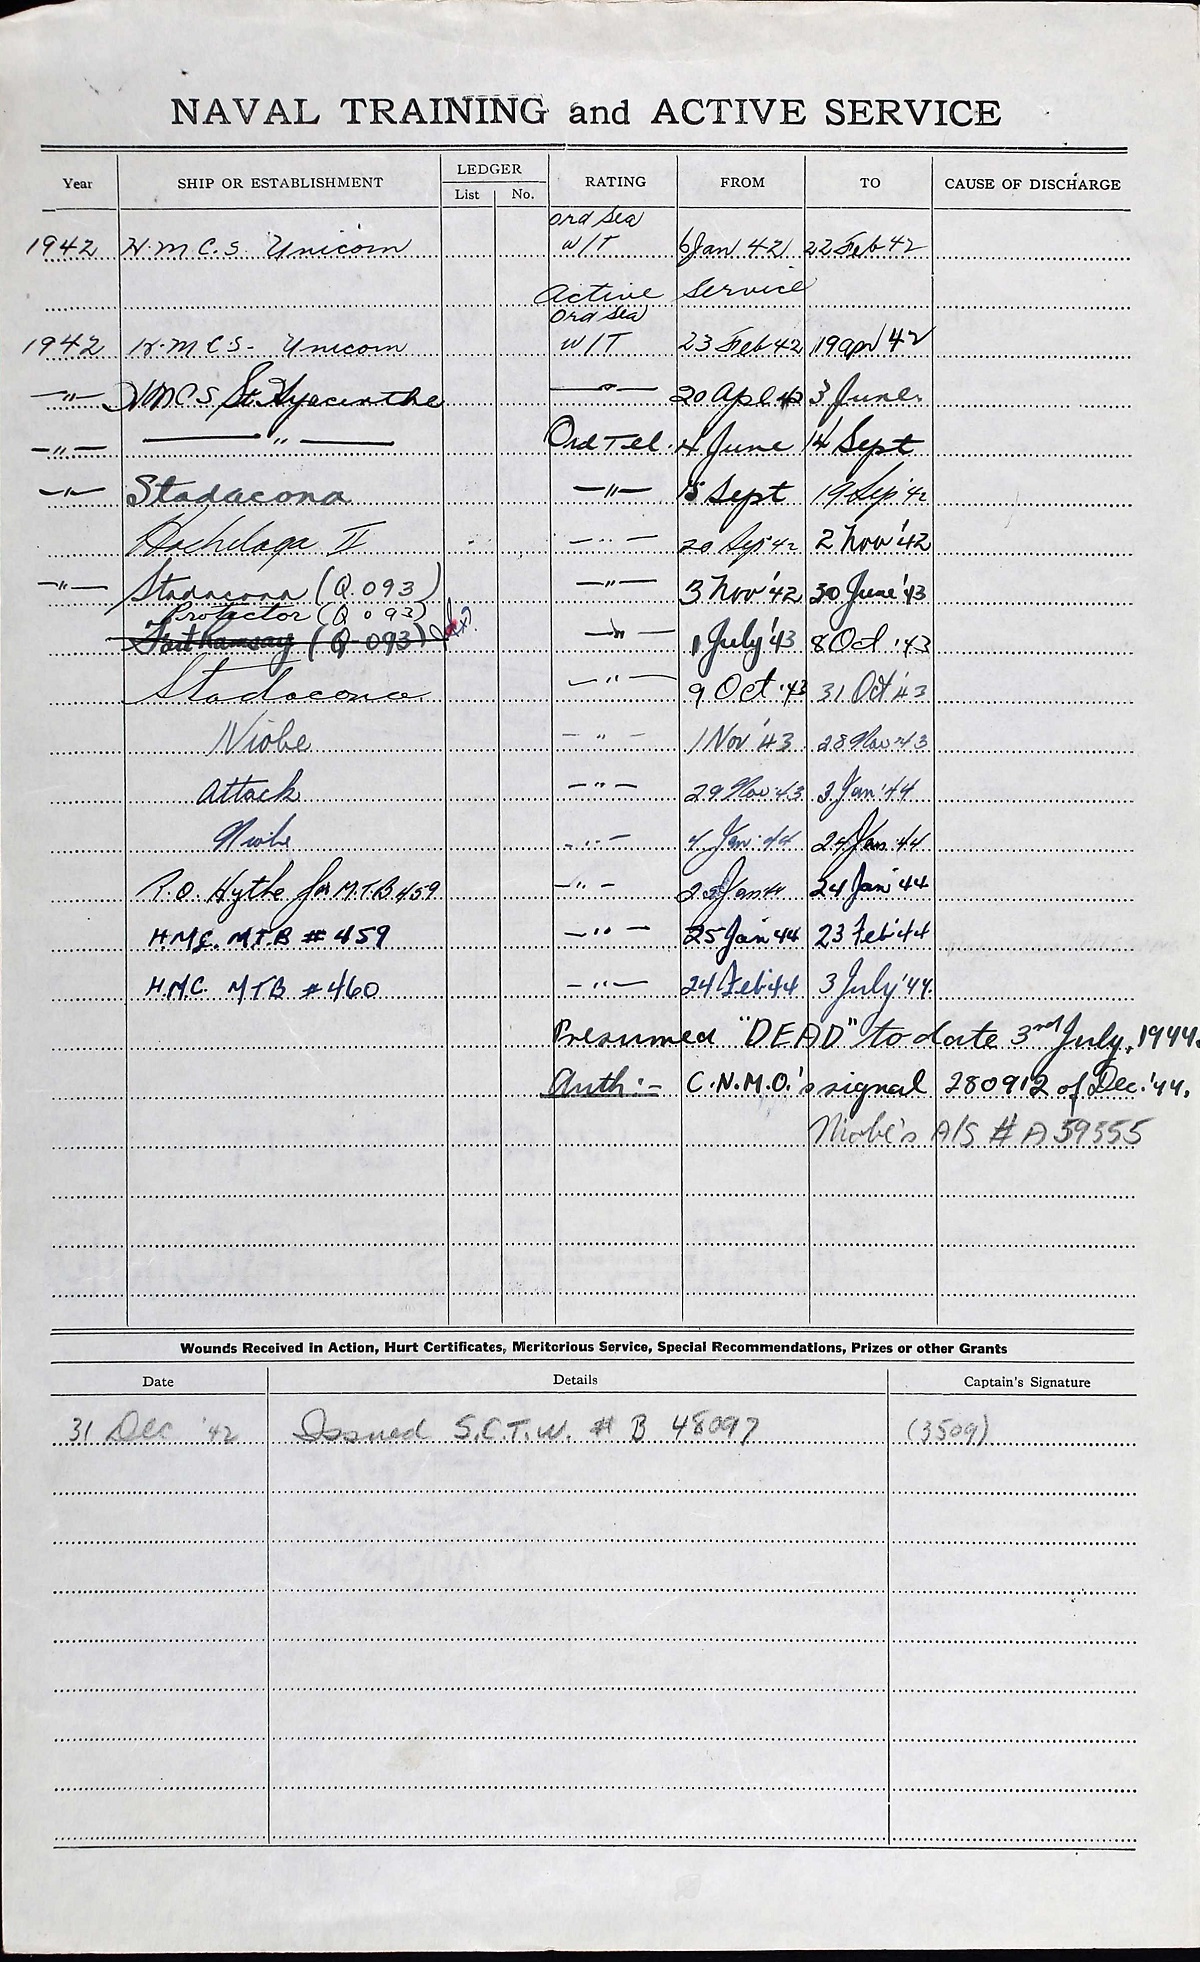 NAVAL TRAINING and ACTIVE SERVICE
Year SHIP OR ESTABLISHMENT LEDGER RATING FROM TO CAUSE OF DISCHARGE
List No.
Ord Sea
1942 H.M.C.S. Unicorn W/T 6 Jan 42 22 Feb 42
Active Service
Ord Sea
1942 H.M.C.S. Unicorn W/T 23 Feb 42 19 Apr 42
—"— HMCS St. Hyacinthe —"— 20 Apl 42 3 June
—"— —"— Ord Tel. 4 June 14 Sept
—"— Stadacona —"— 15 Sept 19 Sep '42
Hochelaga II —"— 20 Sep '42 2 Nov '42
—"— Stadacona (Q.093) —"— 3 Nov '42 30 June '43
Protector (Q 093)
Fort Ramsay (Q-093) —"— 1 July '43 8 Oct '43
Stadacona —"— 9 Oct '43 31 Oct '43
Niobe —"— 1 Nov '43 28 Nov '43
Attack —"— 29 Nov '43 3 Jan '44
Niobe —"— 4 Jan '44 24 Jan '44
R.O. Hythe for M.T.B 459 —"— 25 Jan 44 24 Jan '44
H.M.C. M.T.B # 459 —"— 25 Jan '44 23 Feb '44
H.M.C. MTB # 460 —"— 24 Feb '44 3 July '44.
Presumed "DEAD" to date 3rd July, 1944.
Auth:- C.N.M.O.'s signal 280912 of Dec. '44.
Niobe's A/S # A 59355
Wounds Received in Action, Hurt Certificates, Meritorious Service, Special Recommendations, Prizes or other Grants
Date Details Captain's Signature
31 Dec '42 Issued S.C.T.W. # B 48097 (3509)